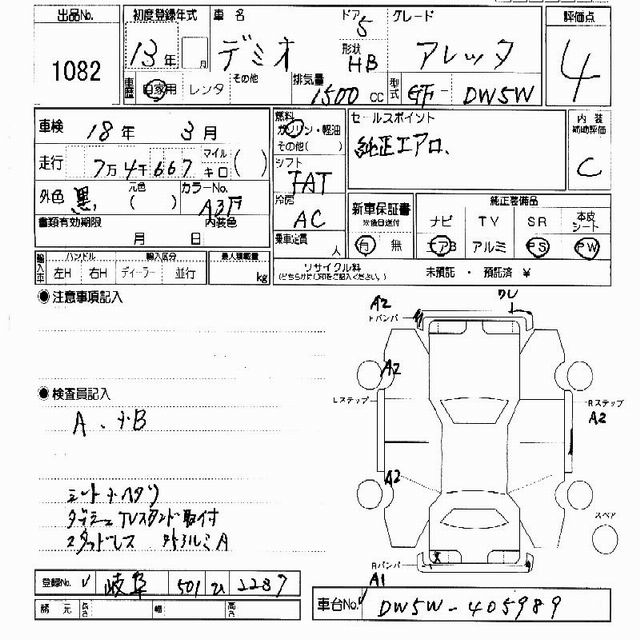 出品No.
1082
初度登録年式
13年 月
車名
デミオ
ドア 5
形状 HB
グレード
アレッタ
評価点
4
車歴 自家用 レンタ その他
排気量
1500 cc
型式
DW5W
車検 18年 3月
走行 7万4千667 マイル キロ ( )
外色 黒 元色 ( ) カラーNo. A3F
書類有効期限 月 日
内装色
燃料
ガソリン・軽油
その他( )
シフト
FAT
冷房
AC
乗車定員 人
セールスポイント
純正エアロ、
内装補助評価
C
新車保証書
※後日送付
有 無
純正装備品
ナビ TV SR 本皮シート
エアB アルミ PS PW
輸入車 ハンドル 左H 右H 輸入区分 ディーラー 並行
最大積載量 kg
リサイクル料
(どちらかに○印をご記入ください。)
未預託・預託済 ¥
●注意事項記入
●検査員記入
A、ナB
シートナヘタリ
ダッシュTVスタンド取付
スタッドレス 外アルミA
A2
Fバンパ
ワレ
A2
Lステップ
Rステップ
A2
A2
スペア
Rバンパ
A1
登録No. 岐阜 501 ひ 2289
諸元 長さ 幅 高さ
車台No. DW5W-405989